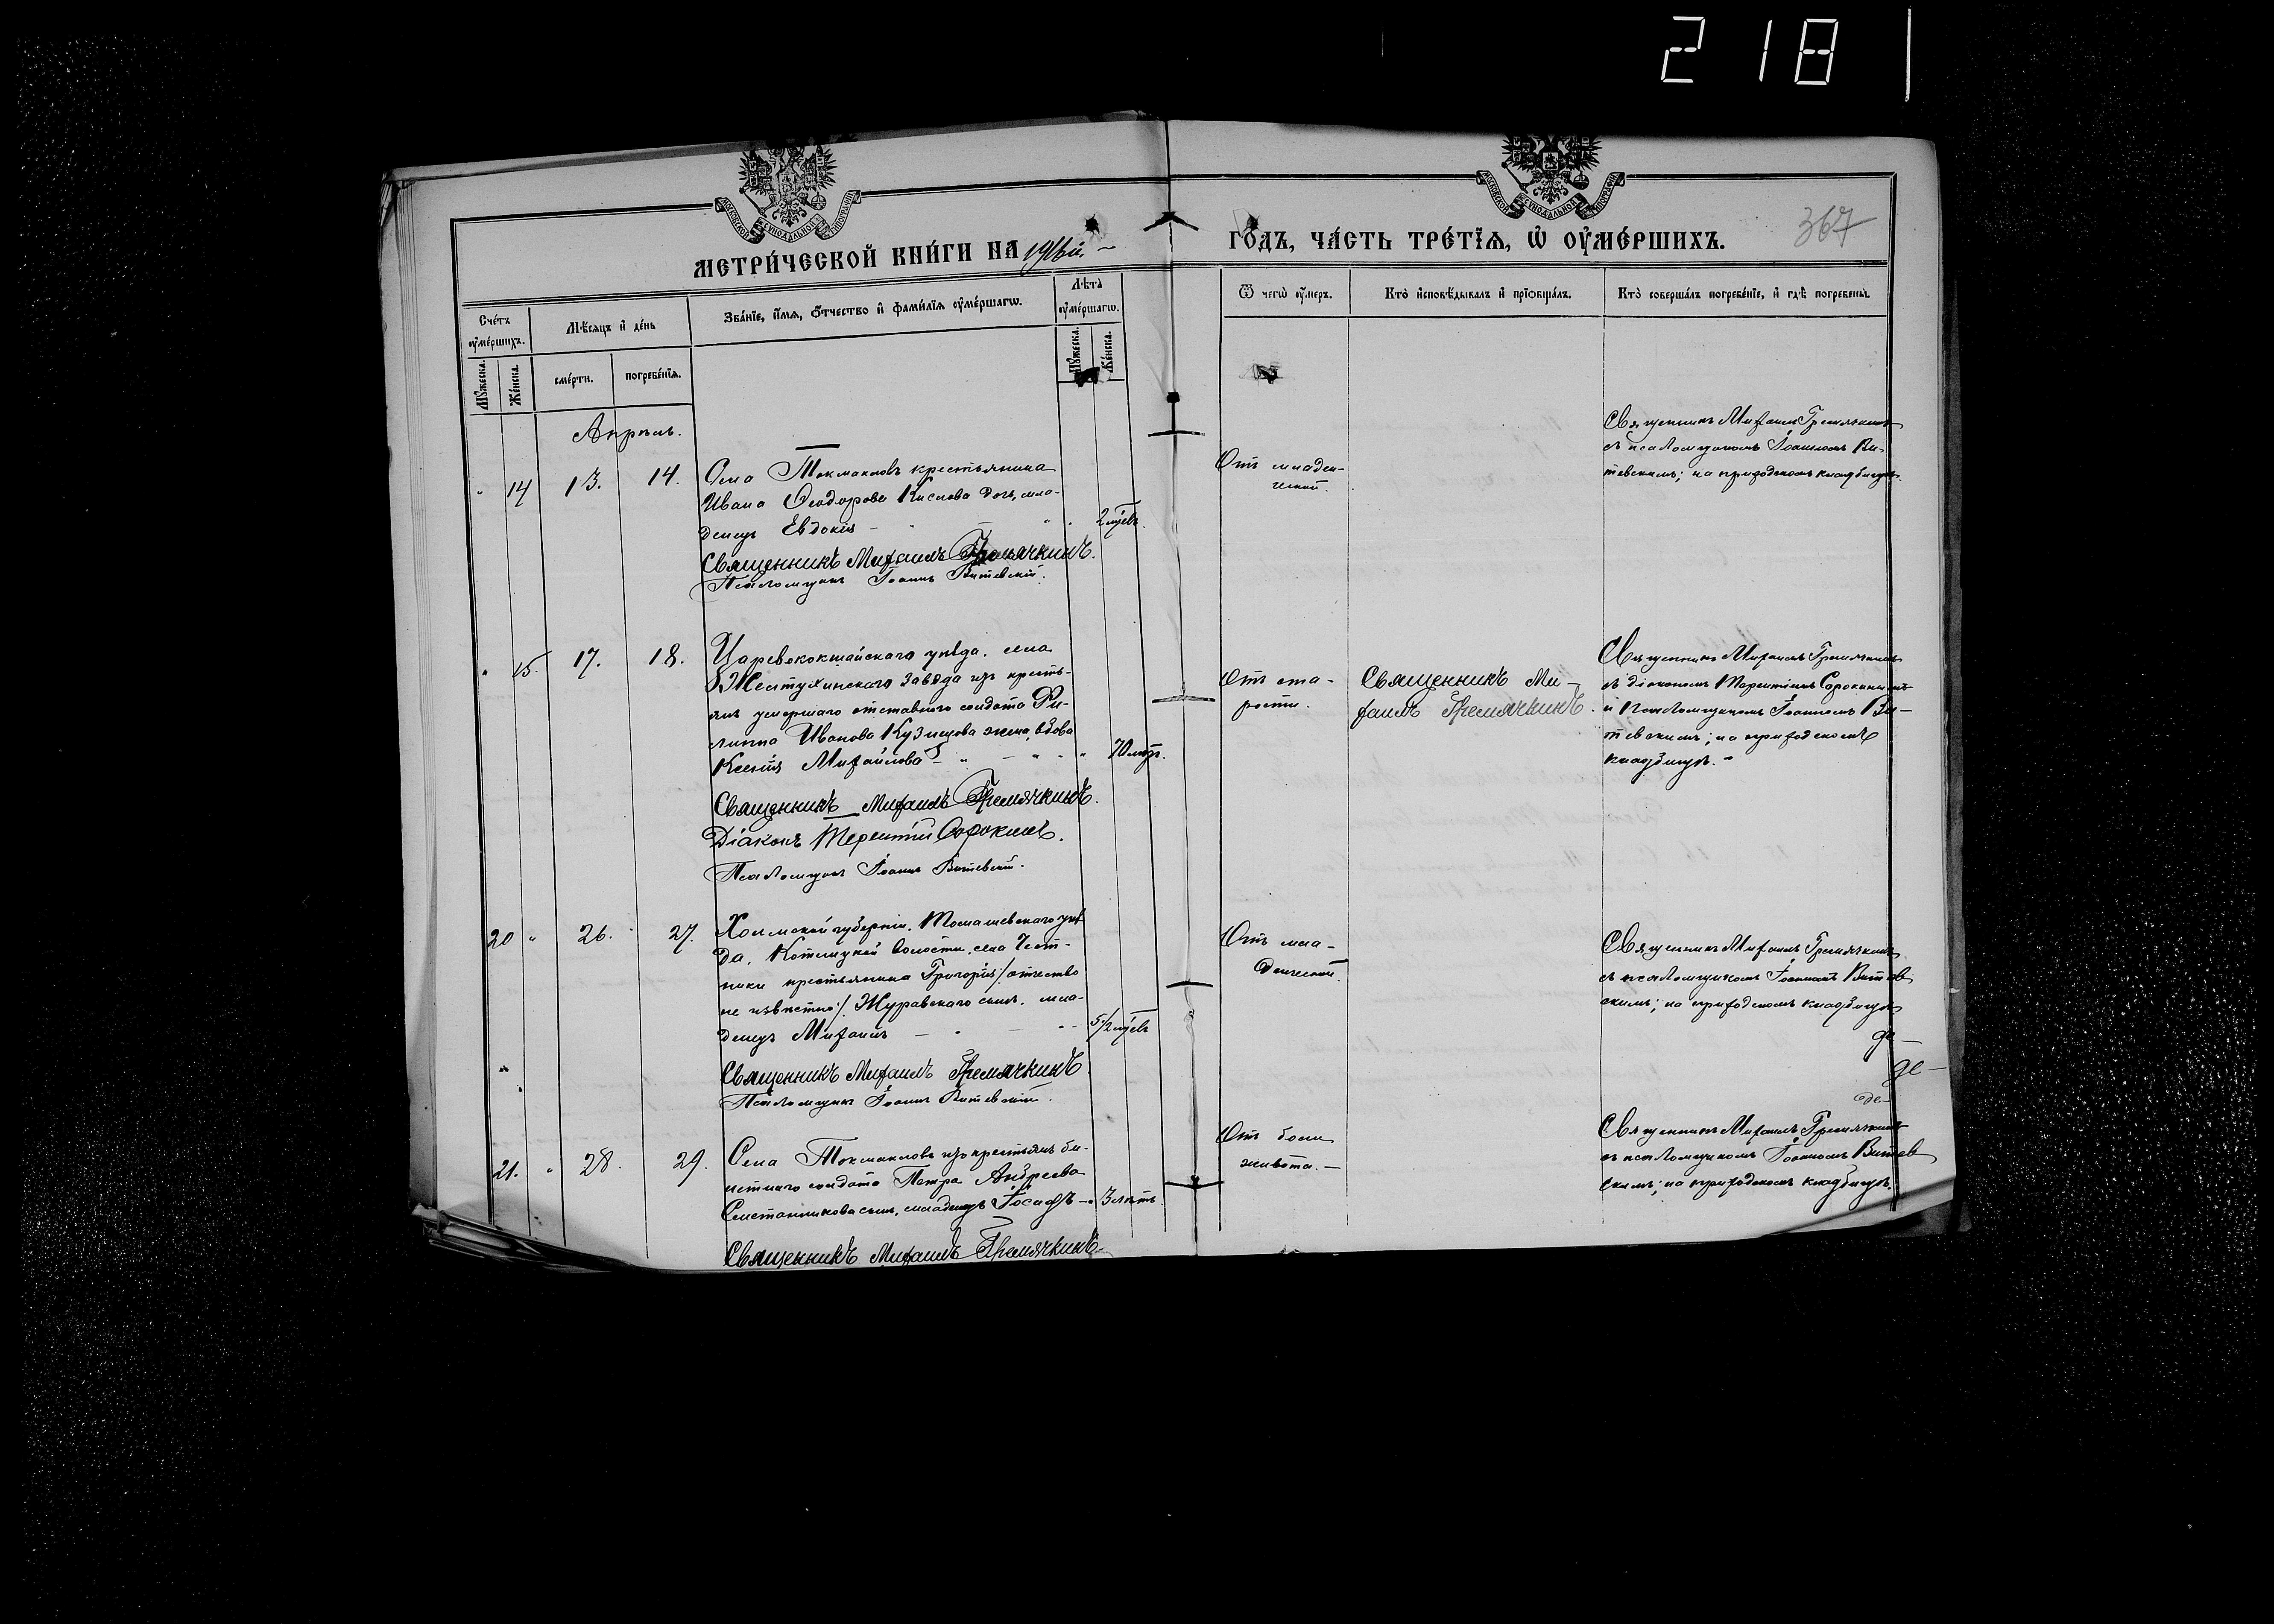 2 18
МОСКОВСКОЙ СѴНОДАЛЬНОЙ ТИПОГРАФІИ
МОСКОВСКОЙ СѴНОДАЛЬНОЙ ТИПОГРАФІИ
367
МЕТРИ́ЧЕСКОЙ КНИ́ГИ НА 1916й.
ГО́ДЪ, ЧА́СТЬ ТРЕ́ТІѦ, Ѡ҆ ОУ҆МЕ́РШИХЪ.
Сче́тъ оу҆ме́ршихъ.
Мѣ́сѧцъ и҆ де́нь
Зва́нїе, и҆́мѧ, ѻ҆́тчество и҆ фами́лїѧ оу҆ме́ршагѡ.
Лѣ́та оу҆ме́ршагѡ.
Ѿ чегѡ̀ оу҆́меръ.
Кто̀ и҆сповѣ́дывалъ и҆ прїѻбща́лъ.
Кто̀ соверша́лъ погребе́нїе, и҆ гдѣ̀ погребены̀.
Мꙋ́жеска.
Же́нска.
сме́рти.
погребе́нїѧ.
Мꙋ́жеска.
Же́нска.
Апрѣль.
14 13. 14. Села Токмаковъ крестьянина
Ивана Ѳеодорова Кислова дочь, мла-
денецъ Евдокія
2 мцѣв.
Священникъ Михаилъ Гремячкинъ.
Псаломщикъ Іоаннъ Витевскій.
Отъ младен-
ческой.
Священникъ Михаилъ Гремячкинъ
съ псаломщикомъ Іоанномъ Ви-
тевскимъ; на приходскомъ кладбищѣ.
15. 17. 18. Царевококшайскаго уѣзда, села
завода изъ кресть-
янъ умершаго отставнаго солдата Фи-
липпа Иванова Кузнецова жена, вдова
Ксенія Михайлова
70 лѣтъ.
Священникъ Михаилъ Гремячкинъ.
Діаконъ Терентій Сорокинъ.
Псаломщикъ Іоаннъ Витевскій.
Отъ ста-
рости.
Священникъ Ми-
хаилъ Гремячкинъ.
Священникъ Михаилъ Гремячкинъ
съ діакономъ Терентіемъ Сорокинымъ
и псаломщикомъ Іоанномъ Ви-
тевскимъ; на приходскомъ
кладбищѣ.
20 26. 27. Холмской губерніи, Томашевскаго уѣз
да, Котлицкой волости, села Чест-
ники крестьянина Григорія /отчество
не извѣстно/ Журавскаго сынъ, мла-
денецъ Михаилъ
5½ мцѣв
Священникъ Михаилъ Гремячкинъ
Псаломщикъ Іоаннъ Витевскій.
Отъ мла-
денческой
Священникъ Михаилъ Гремячкинъ
съ псаломщикомъ Іоанномъ Витев
скимъ; на приходскомъ кладбищѣ
21. 28. 29. Села Токмаковъ изъ крестьянъ би-
летнаго солдата Петра Андреева
Сметанникова сынъ, младенецъ Іосафъ
3 лѣтъ.
Священникъ Михаилъ Гремячкинъ
Отъ боли
живота.
Священникъ Михаилъ Гремячкинъ
съ псаломщикомъ Іоанномъ Витев
скимъ; на приходскомъ кладбищѣ.